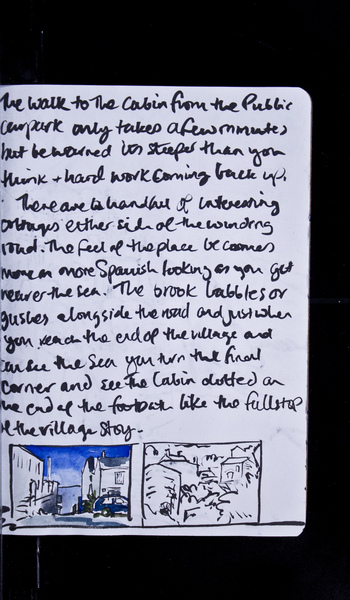 The walk to The Cabin from the Public
carpark only takes a few minutes
but be warned its steeper than you
think + hard work coming back up.
There are a handful of interesting
cottages either side of the winding
road. The feel of the place becomes
more an more Spanish looking as you get
nearer the sea. The brook babbles or
gushes alongside the road and just when
you reach the end of the village and
can see the sea you turn that final
corner and see the Cabin dotted on
the end of the footpath like the fullstop
of the village story.